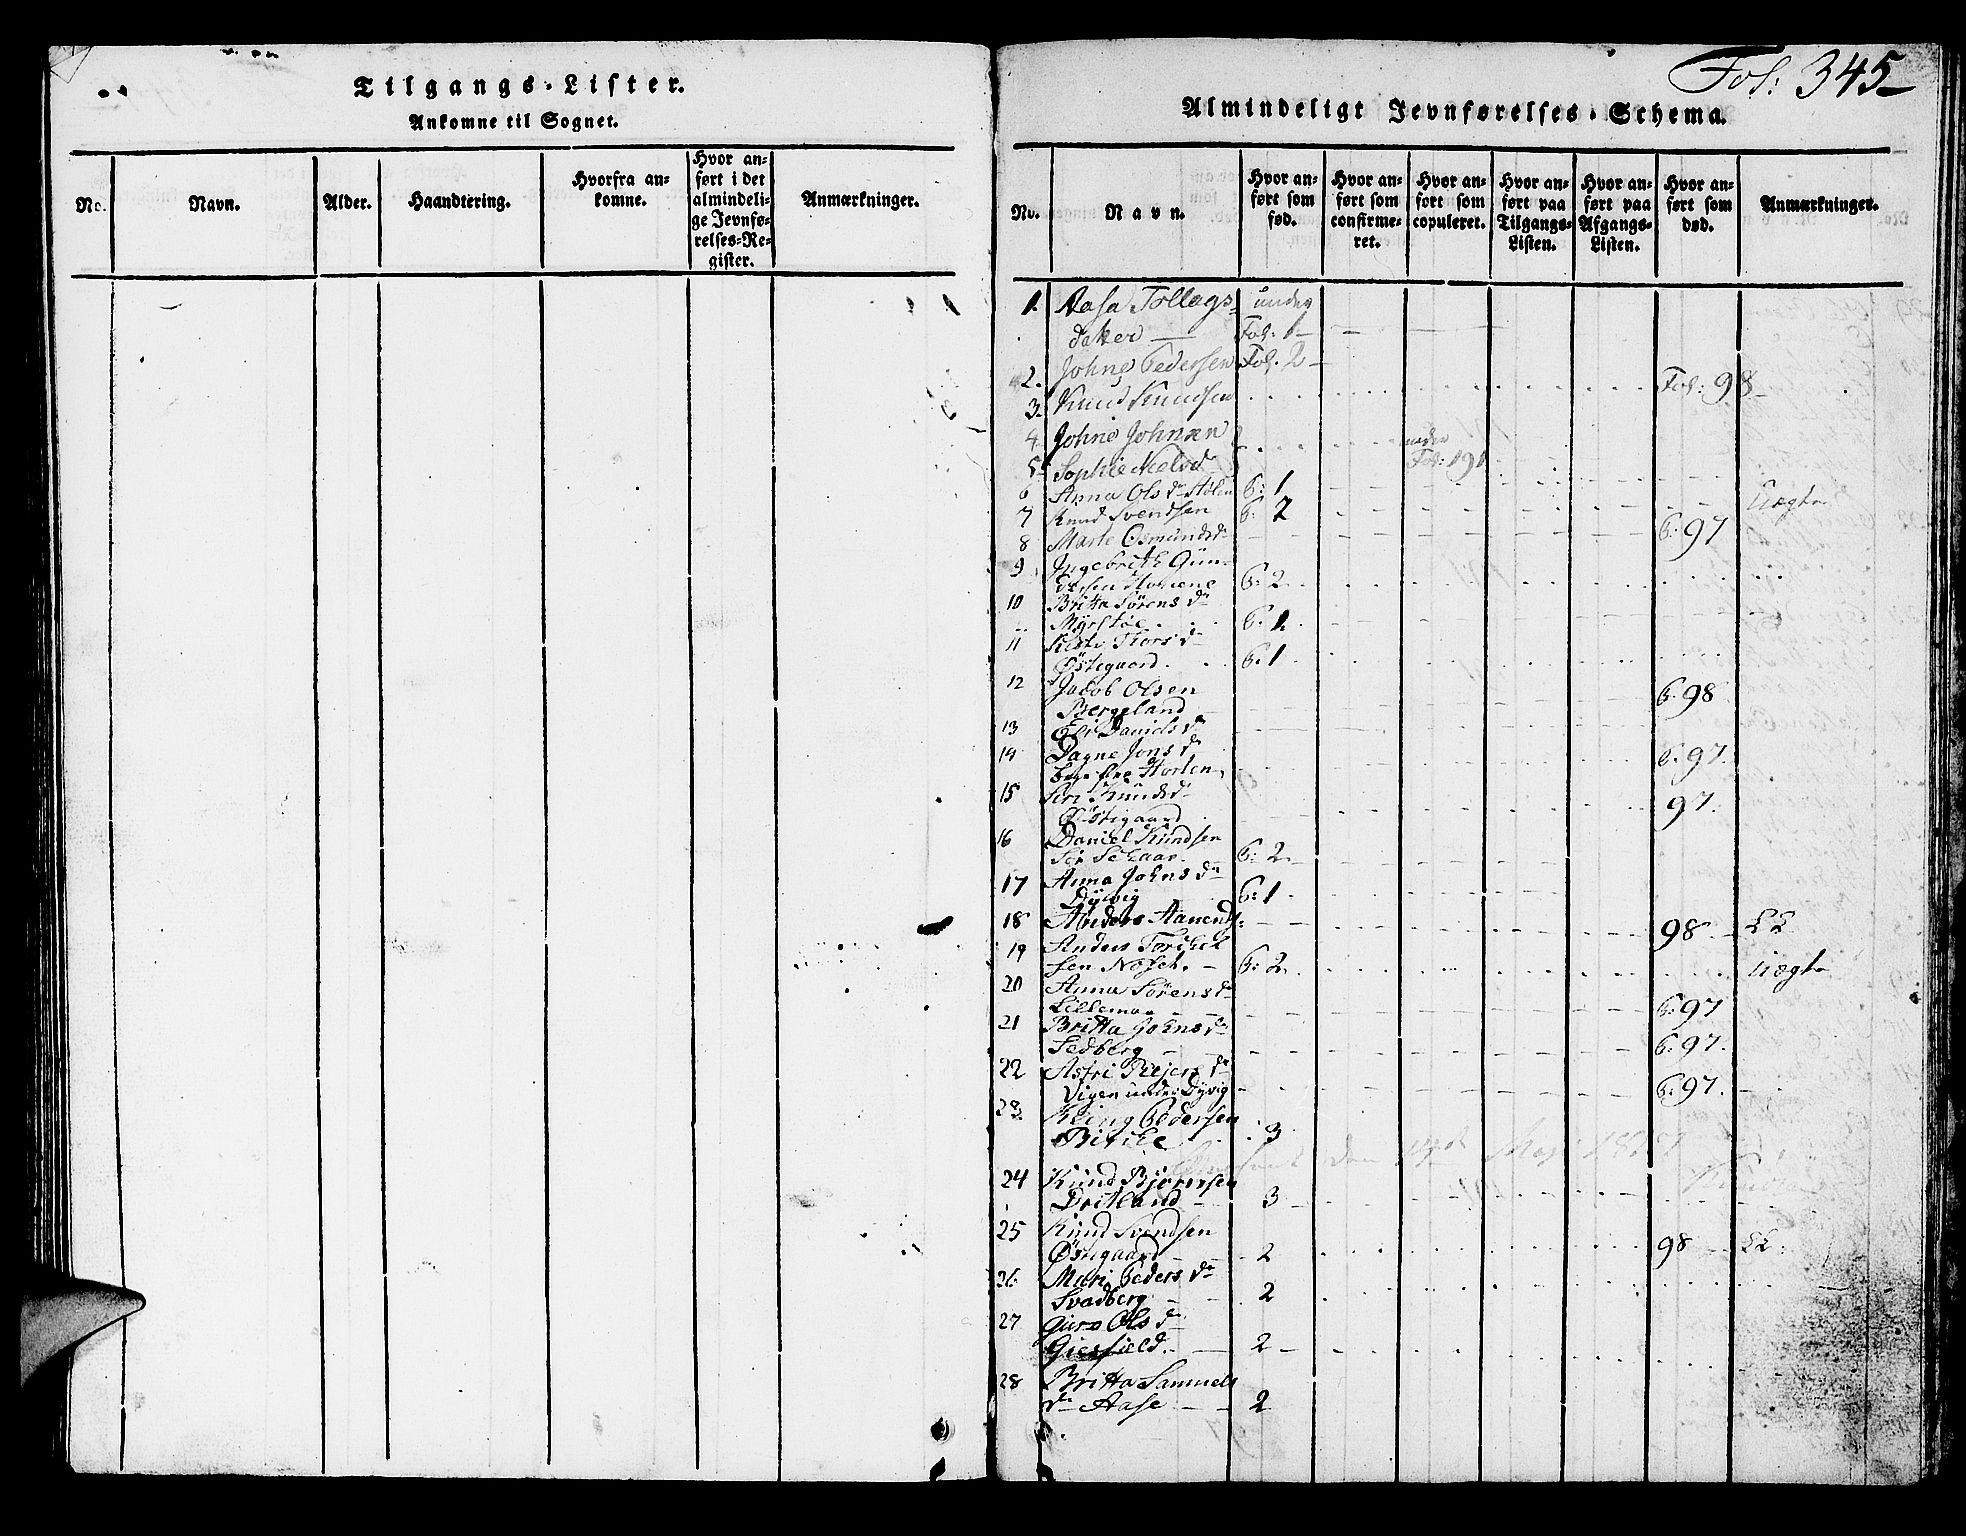 Tilgangs-Lister.
Ankomne til Sognet.
No.
Navn.
Alder.
Haandtering.
Hvorfra an-
komne.
Hvor an-
ført i det
almindeli-
ge Jevnfø-
relses-Re-
gister.
Anmærkninger.
Fol: 345
Almindeligt Jevnførelses-Schema.
No.
Navn.
Hvor an-
ført som
fød.
Hvor an-
ført som
confirme-
ret.
Hvor an-
ført som
copuleret.
Hvor an-
ført paa
Tilgangs-
Listen.
Hvor an-
ført paa
Afgangs-
Listen.
Hvor an-
ført som
død.
Anmærkninger.
1. Aasa Tollags under
datter Fol: 1
2. Johne Pedersen Fol. 2
3. Knud Knudsen Fol: 98
4 Johne Johnsen under
5 Sophie Neelsd Fol: 191
6 Anna Olsdr 6: 1 Uægte
7 Knud Svendsen 6: 2
8 Marte Osmundsdr 6: 97
9 Ingebrith Gun-
dersen 6: 2
10 Britta Sørensdr
Myrstøe 6: 1
11 Thorsdr
Østigaard 6: 1
12 Jacob Olsen
Bergeland 6: 98
13 Eli Danielsdr
14 Dagne Jonsdr
97
15 Siri Knudsdr
Østigaard 97.
16 Daniel Knudsen
6: 2
17 Anna Johnsdr
Dyvig 6: 1
18 Anders Aanends: 98
19 Anders
sen 6: 2 Uægte
20 Anna Sørensdr
6: 97
21 Britta Johnsdr
Sedberg 6: 97.
22 Astri dr
Vigen under Dyvig 6: 97.
23 Pedersen
3
24 Knud Bjørnsen
Dritland 3
25 Knud Svendsen
Østigaard 2 98
26 Mari Pedersdr
Svadberg 2
27 Guro Olsdr
2
28 Britta Samuels
dr Aase 2